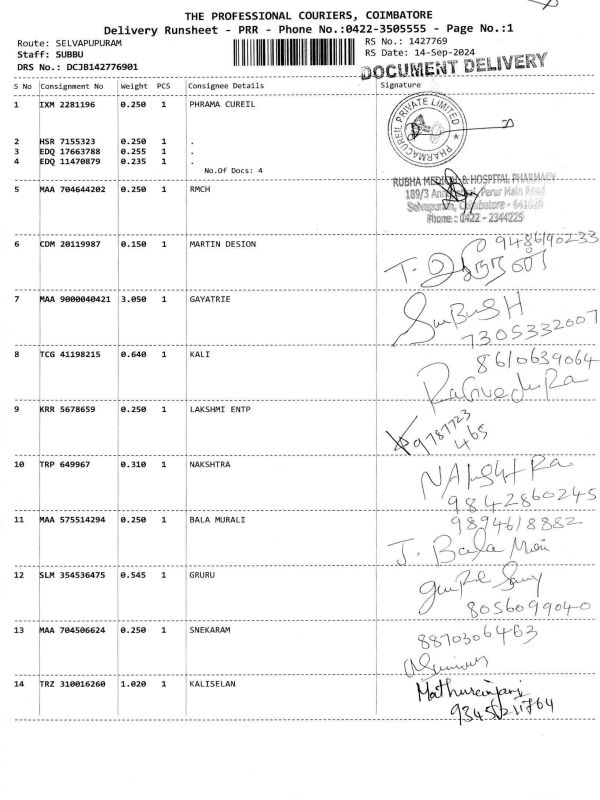 THE PROFESSIONAL COURIERS, COIMBATORE
Delivery Runsheet - PRR - Phone No.:0422-3505555 - Page No.:1
Route: SELVAPUPURAM
Staff: SUBBU
DRS No.: DCJB142776901
RS No.: 1427769
RS Date: 14-Sep-2024
DOCUMENT DELIVERY
S No Consignment No Weight PCS Consignee Details Signature
1 IXM 2281196 0.250 1 PHRAMA CUREIL
PHARMACUREIL PRIVATE LIMITED
2 HSR 7155323 0.250 1 .
3 EDQ 17663788 0.255 1 .
4 EDQ 11470879 0.235 1 .
No.Of Docs: 4
5 MAA 704644202 0.250 1 RMCH
RUBHA MEDICAL & HOSPITAL PHARMACY
189/3 Perur Main Road
Selvapuram, Coimbatore - 641026
Phone : 0422 - 2344225
6 CDM 20119987 0.150 1 MARTIN DESION
9486190233
7 MAA 9000040421 3.050 1 GAYATRIE
7305332007
8 TCG 41198215 0.640 1 KALI
8610639064
9 KRR 5678659 0.250 1 LAKSHMI ENTP
9787723
465
10 TRP 649967 0.310 1 NAKSHTRA
9842860245
11 MAA 575514294 0.250 1 BALA MURALI
9894618882
J. Bala
12 SLM 354536475 0.545 1 GRURU
8056099040
13 MAA 704506624 0.250 1 SNEKARAM
8870306463
14 TRZ 310016260 1.020 1 KALISELAN